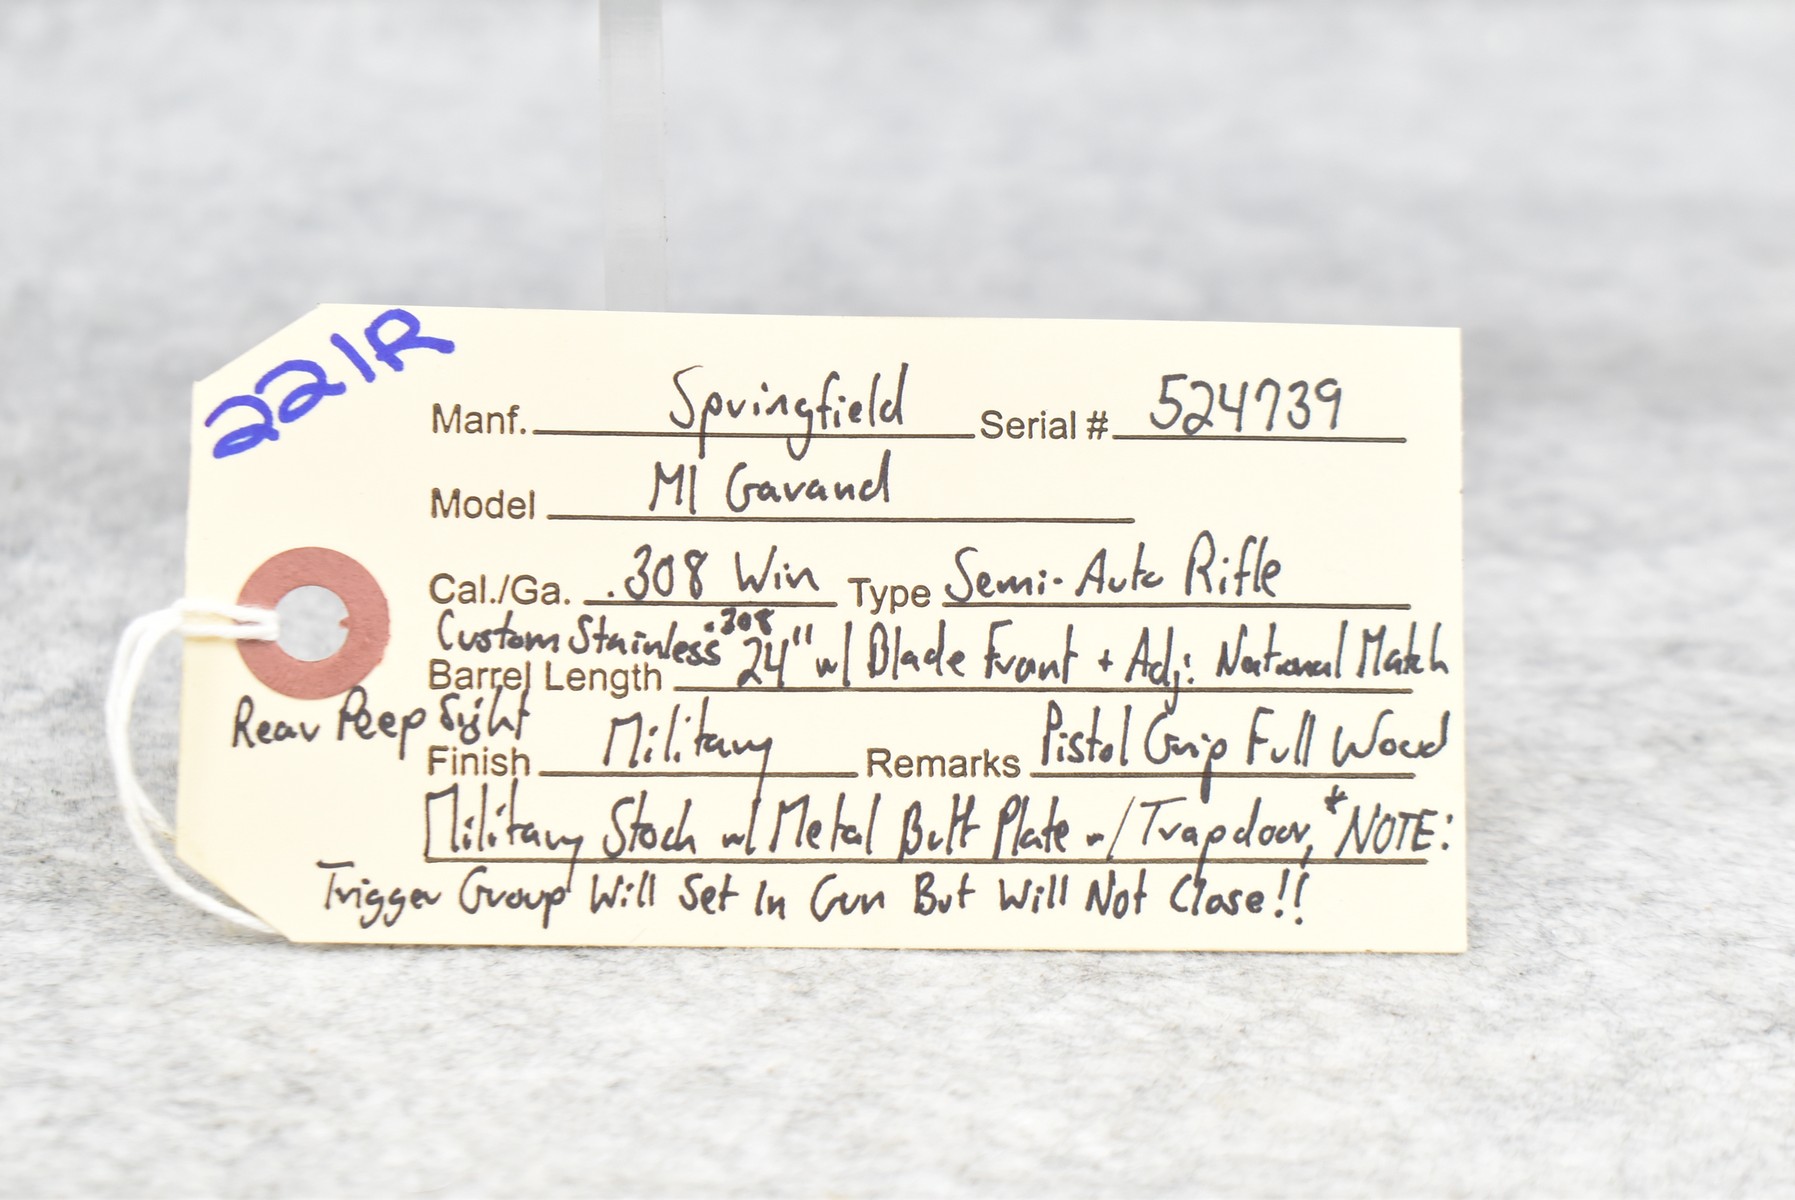 221R
Manf. Springfield Serial # 524739
Model M1 Garand
Cal./Ga. .308 Win Type Semi-Auto Rifle
Custom Stainless .308
Barrel Length 24" w/ Blade Front + Adj. National Match
Rear Peep Sight
Finish Military Remarks Pistol Grip Full Wood
Military Stock w/ Metal Butt Plate w/ Trapdoor, *NOTE:
Trigger Group Will Set In Gun But Will Not Close!!